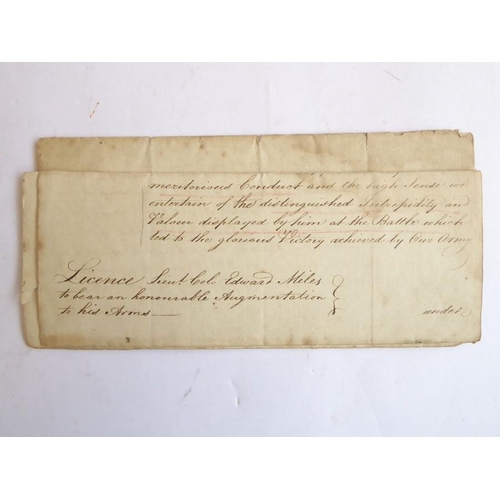 meritorious Conduct and the high Sense we
entertain of the distinguished Intrepidity and
Valour displayed by him at the Battle which
led to the glorious Victory achieved by Our Army
Licence Lieut Col. Edward Miles
to bear an honourable Augmentation
to his Arms —
under